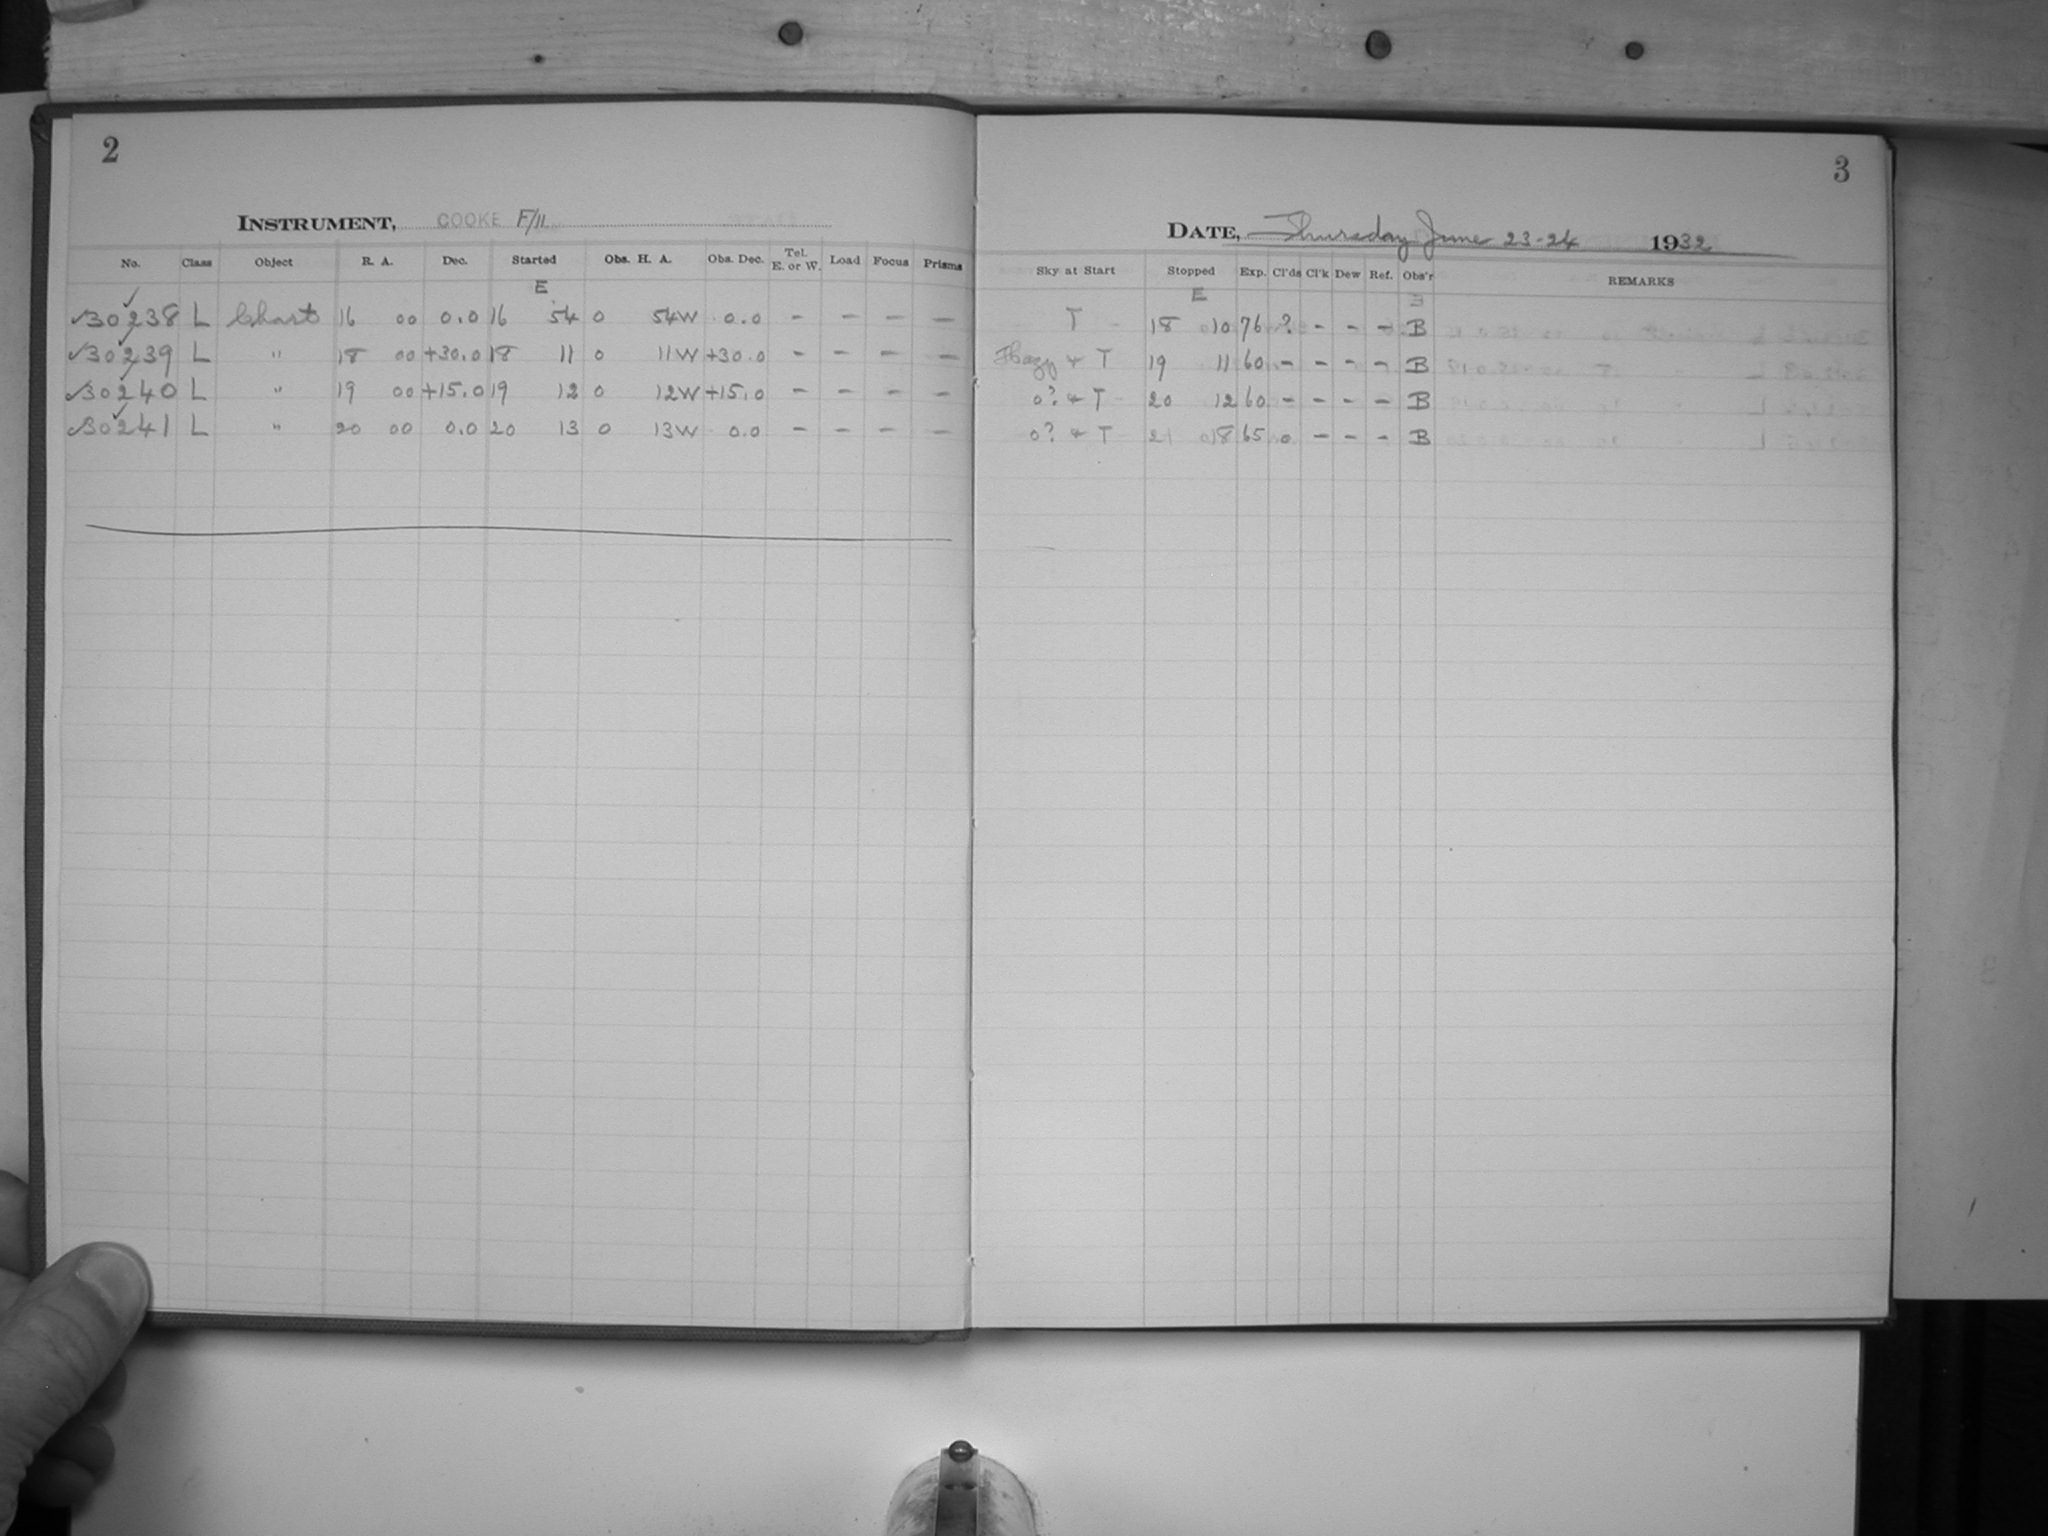 2
INSTRUMENT, COOKE F/11
No. Class Object R. A. Dec. Started Obs. H. A. Obs. Dec. Tel. E. or W. Load Focus Prisms
E
30238 L Chart 16 00 0.0 16 54 0 54W 0.0 - - - -
30239 L " 18 00 +30.0 18 11 0 11W +30.0 - - - -
30240 L " 19 00 +15.0 19 12 0 12W +15.0 - - - -
30241 L " 20 00 0.0 20 13 0 13W 0.0 - - - -
3
DATE, Thursday June 23-24 1932
Sky at Start Stopped Exp. Cl'ds Cl'k Dew Ref. Obs'r REMARKS
E
T 18 10 76 ? - - - B
Hazy & T 19 11 60 - - - - B
0? & T 20 12 60 - - - - B
0? & T 21 18 65 0 - - - B